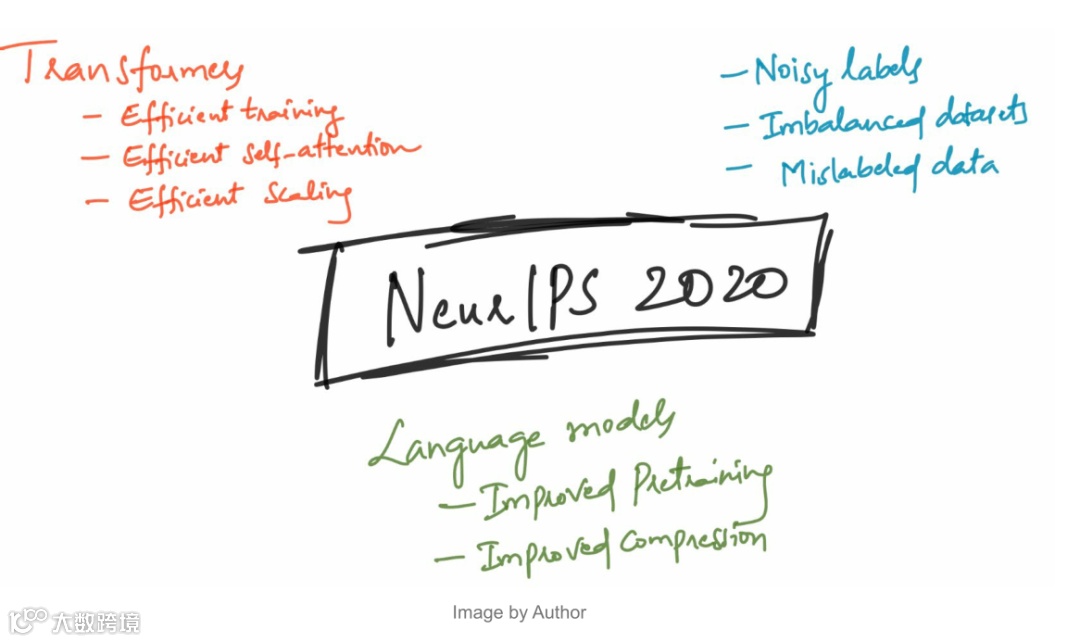 Transformers
- Efficient training
- Efficient self-attention
- Efficient scaling
- Noisy labels
- Imbalanced datasets
- Mislabeled data
NeurIPS 2020
Language models
- Improved Pretraining
- Improved Compression
Image by Author
大数跨境